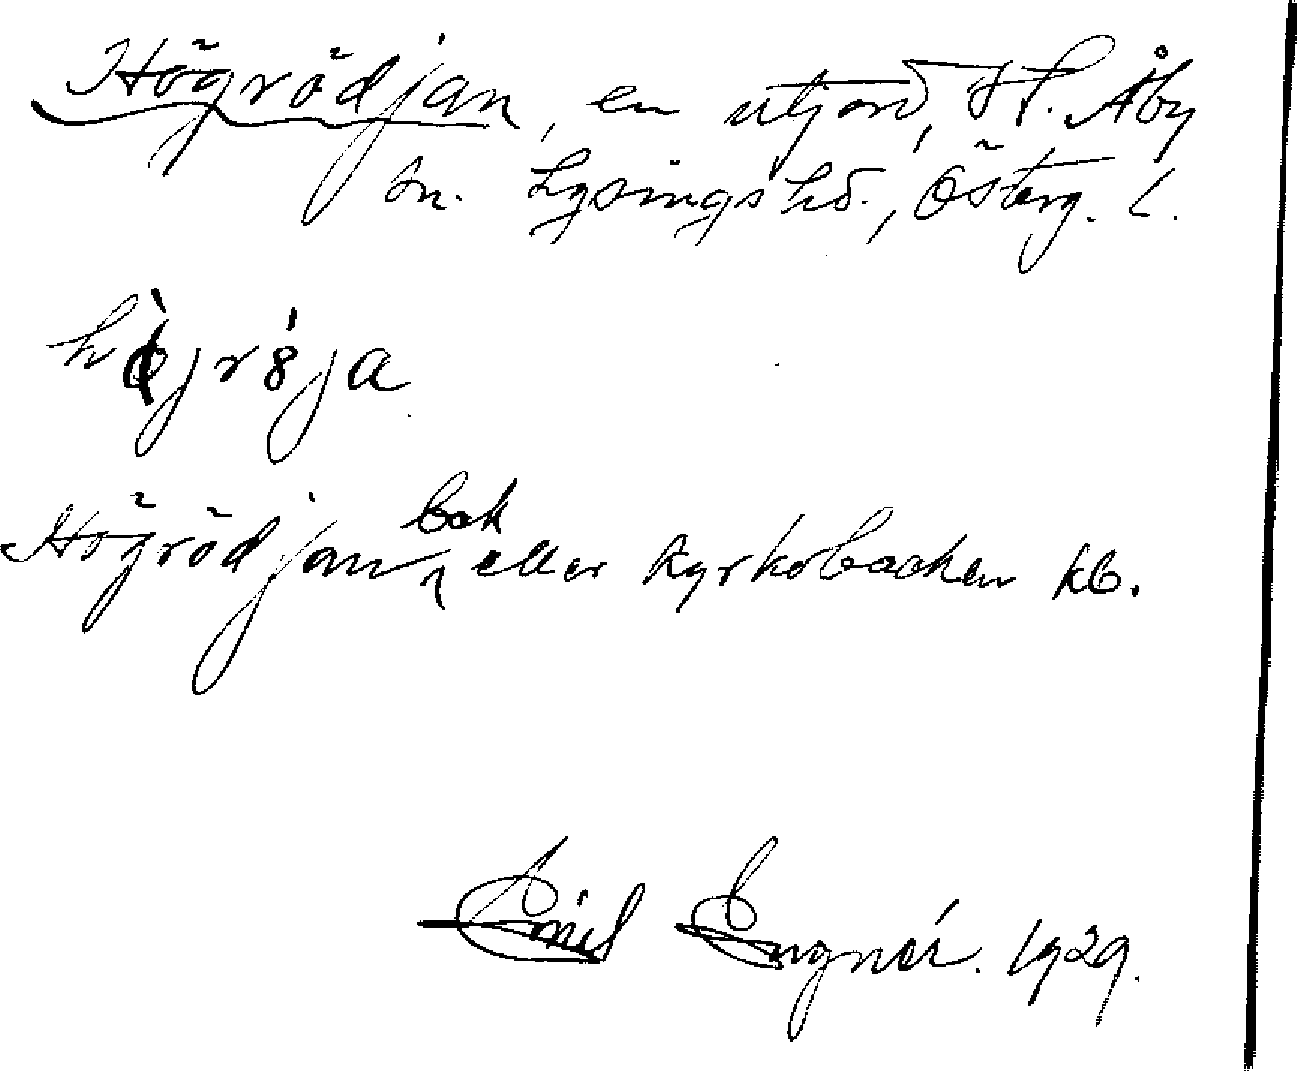 Högrödjan, en utjord, St. Åby
sn. Lysings hd., Österg. l.
hö̀jrö́ja
Högrödjan bak eller Kyrkobacken kb.
Emil Engnér. 1929.